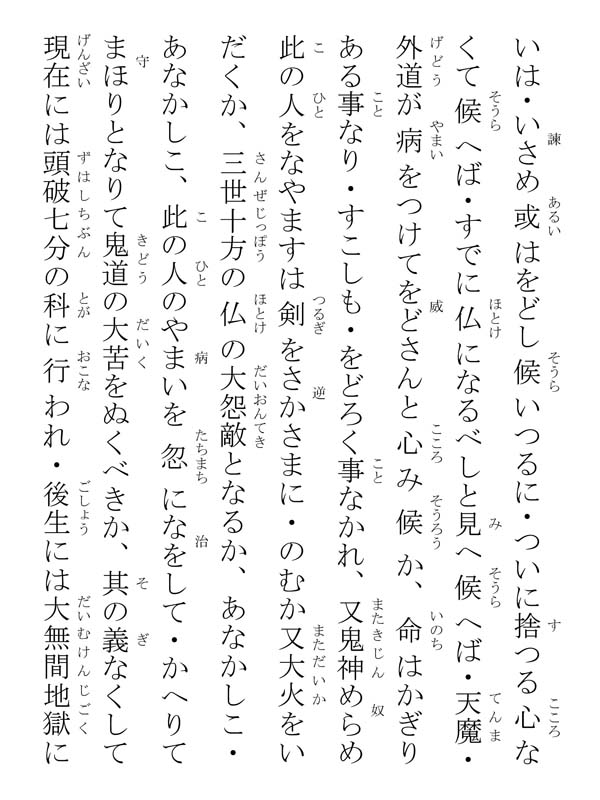 いは・いさめ或はをどし候いつるに・ついに捨つる心な
くて候へば・すでに仏になるべしと見へ候へば・天魔・
外道が病をつけてをどさんと心み候か、命はかぎり
ある事なり・すこしも・をどろく事なかれ、又鬼神めらめ
此の人をなやますは剣をさかさまに・のむか又大火をい
だくか、三世十方の仏の大怨敵となるか、あなかしこ・
あなかしこ、此の人のやまいを忽になをして・かへりて
まほりとなりて鬼道の大苦をぬくべきか、其の義なくして
現在には頭破七分の科に行われ・後生には大無間地獄に